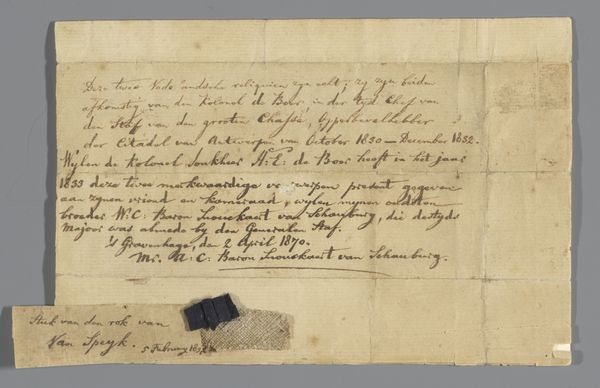 Deze twee Nade andsche reliquien zyn echt; zy zyn beiden
afkomstig van den Kolonel de Boer, in der tyd Chef van
den Staf van den grooten Chassé, Opperbevelhebber
der Citadel van Antwerpen van October 1830 — December 1832.
Wylen de Kolonel Jonkheer A: L: de Boer heeft in het jaar
1833 deze twee merkwaardige voorwerpen present gegeven
aan zynen vriend en kameraad, wylen mynen oudsten
broeder W: C: Baron Snouckaert van Schauburg, die destyds
Majoor was almede by den Generalen Staf.
's Gravenhage, den 2 April 1870.
Mr. A: C: Baron Snouckaert van Schauburg.
Stuk van den rok van
Van Speyk. 5 February 1831